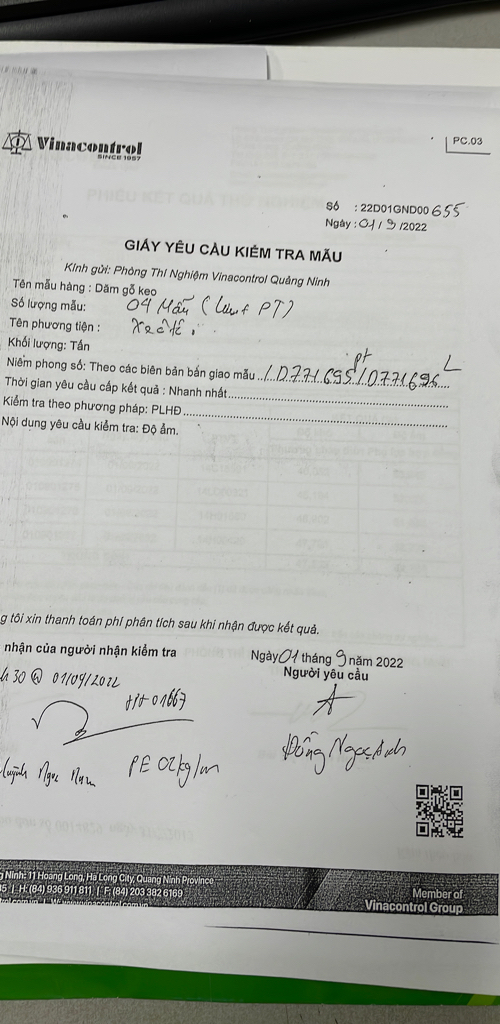 Vinacontrol
SINCE 1957
PC.03
Số : 22D01GND00 655
Ngày : 01 / 9 /2022
GIẤY YÊU CẦU KIỂM TRA MẪU
Kính gửi: Phòng Thí Nghiệm Vinacontrol Quảng Ninh
Tên mẫu hàng : Dăm gỗ keo
Số lượng mẫu: 04 Mẫu ( Lưu + PT)
Tên phương tiện : Xe ôtô
Khối lượng: Tấn
pt L
Niêm phong số: Theo các biên bản bấn giao mẫu ../ D771695 / D771696
Thời gian yêu cầu cấp kết quả : Nhanh nhất
Kiểm tra theo phương pháp: PLHĐ
Nội dung yêu cầu kiểm tra: Độ ẩm.
g tôi xin thanh toán phí phân tích sau khi nhận được kết quả.
nhận của người nhận kiểm tra
Ngày 01 tháng 9 năm 2022
Người yêu cầu
h 30 @ 01/09/2022
01667
Ngọc Nam
PE 02kg/m
Đồng Ngọc Anh
g Ninh: 11 Hoang Long, Ha Long City, Quang Ninh Province
35 | H: (84) 936 911 811 | F: (84) 203 382 6169
rol.com.vn | W: www.vinacontrol.com.vn
Member of
Vinacontrol Group